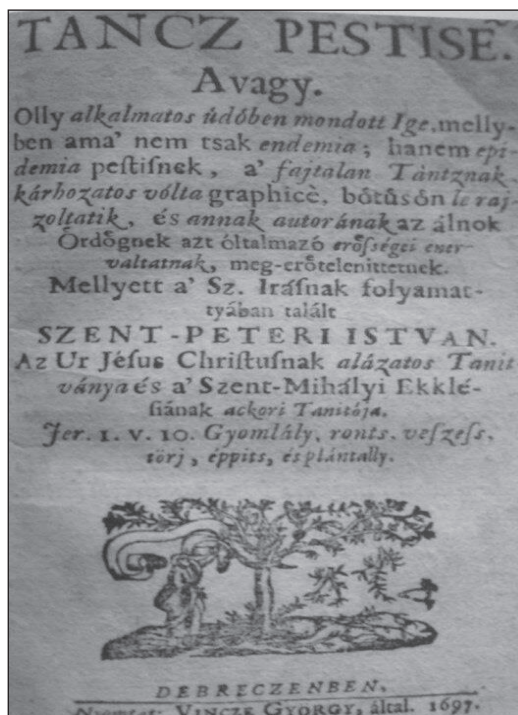 TANCZ PESTISẽ.
Avagy.
Olly alkalmatos údóben mondott Ige, melly-
ben ama' nem tsak endemia; hanem epi-
demia pestisnek, a' fajtalan Tántznak
kárhozatos vólta graphicè, bótúsón le raj-
zoltatik, és annak autorának az álnok
Ördögnek azt óltalmazó erősségei ener-
váltatnak, meg-erőtelenittetnek.
Mellyett a' Sz. Irásnak folyamat-
tyában talált
SZENT-PETERI ISTVAN.
Az Ur Jésus Christusnak alázatos Tanit
ványa és a' Szent-Mihályi Ekklé-
siának ackori Tanitója.
Jer. 1. v. 10. Gyomlály, ronts, veszess,
törj, éppits, és plántally.
DEBRECZENBEN,
Nyomtat: VINCZE GYORGY, által. 1697.